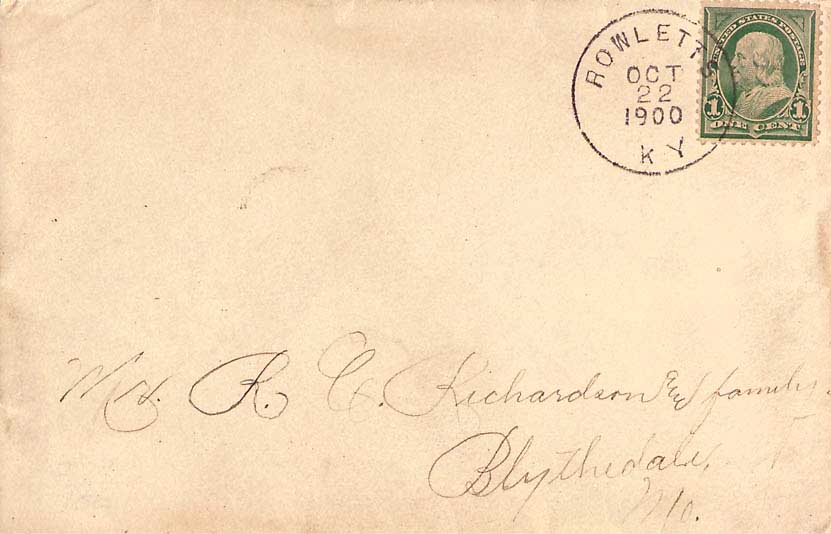 ROWLETTS
OCT
22
1900
KY
UNITED STATES POSTAGE
1 1
ONE CENT
Mr. R. C. Richardson & family.
Blythedale,
Mo.